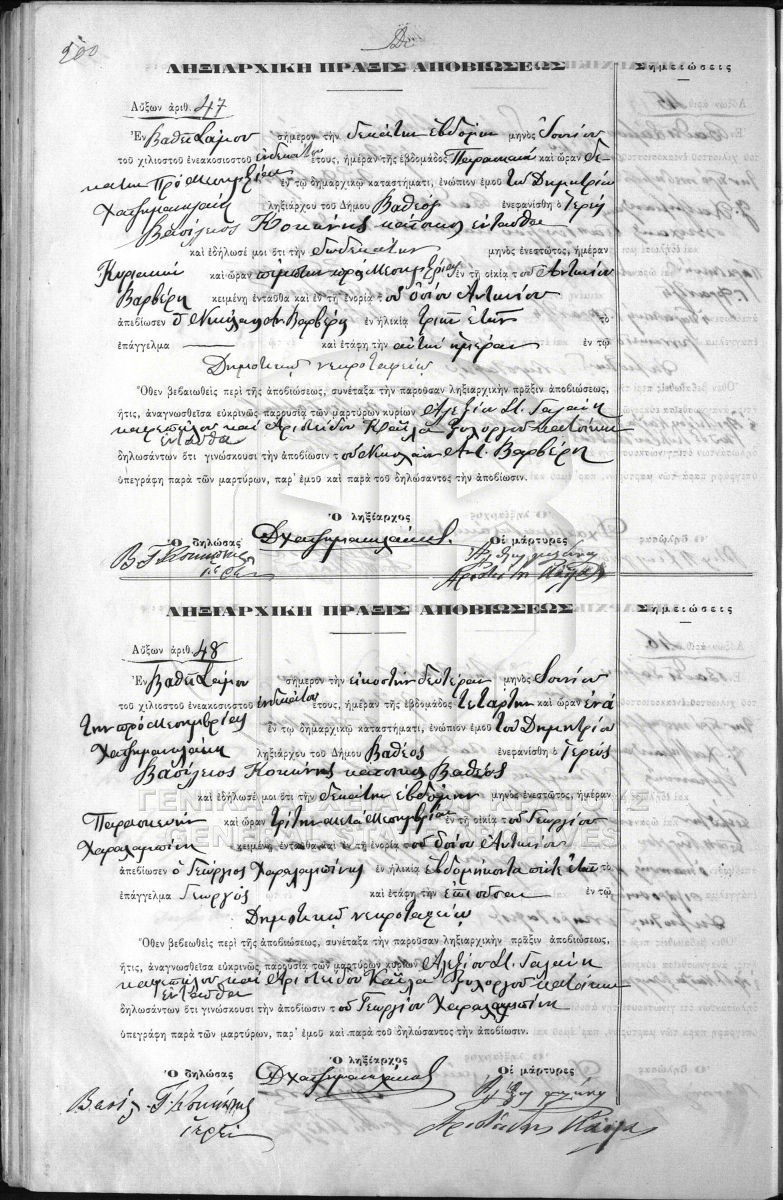 200
ΛΗΞΙΑΡΧΙΚΗ ΠΡΑΞΙΣ ΑΠΟΒΙΩΣΕΩΣ
Σημειώσεις
Αὔξων ἀριθ. 47
Ἐν Βαθεῖ Σάμου σήμερον τὴν δεκάτην ἑβδόμην μηνὸς Ἰουνίου
τοῦ χιλιοστοῦ ἐνεακοσιοστοῦ ἑνδεκάτου ἔτους, ἡμέραν τῆς ἑβδομάδος Παρασκευὴ καὶ ὥραν δε-
κάτην πρὸ μεσημβρίας ἐν τῷ δημαρχικῷ καταστήματι, ἐνώπιον ἐμοῦ τοῦ Δημητρίου
Χατζημιχαλάκη ληξιάρχου τοῦ Δήμου Βαθέος ἐνεφανίσθη ὁ Ἱερεὺς
Βασίλειος Κοκώνης κάτοικος ἐνταῦθα
καὶ ἐδήλωσέ μοι ὅτι τὴν δωδεκάτην μηνὸς ἐνεστῶτος, ἡμέραν
Κυριακὴν καὶ ὥραν πέμπτην πρὸ μεσημβρίας ἐν τῇ οἰκίᾳ τοῦ Ἀντωνίου
Βαρβέρη κειμένῃ ἐνταῦθα καὶ ἐν τῇ ἐνορίᾳ τοῦ ὁσίου Ἀντωνίου
ἀπεβίωσεν ὁ Νικόλαος Ἀν. Βαρβέρης ἐν ἡλικίᾳ τριῶν ἐτῶν τὸ
ἐπάγγελμα — καὶ ἐτάφη τὴν αὐτὴν ἡμέραν ἐν τῷ
Δημοτικῷ νεκροταφείῳ
Ὅθεν βεβαιωθεὶς περὶ τῆς ἀποβιώσεως, συνέταξα τὴν παροῦσαν ληξιαρχικὴν πρᾶξιν ἀποβιώσεως,
ἥτις, ἀναγνωσθεῖσα εὐκρινῶς παρουσίᾳ τῶν μαρτύρων κυρίων Ἀλεξίου Στ.
καὶ Ἀριστείδου Κάϊλα
ἐνταῦθα
δηλωσάντων ὅτι γινώσκουσι τὴν ἀποβίωσιν τοῦ Νικολάου Ἀντ. Βαρβέρη
ὑπεγράφη παρὰ τῶν μαρτύρων, παρ' ἐμοῦ καὶ παρὰ τοῦ δηλώσαντος τὴν ἀποβίωσιν.
Ὁ ληξίαρχος
Ὁ δηλώσας
Οἱ μάρτυρες
Β. Γ. Κοκώνης
Δ Χατζημιχαλάκης
ἱερεὺς
Ἀριστείδης Κάϊλας
ΛΗΞΙΑΡΧΙΚΗ ΠΡΑΞΙΣ ΑΠΟΒΙΩΣΕΩΣ
Σημειώσεις
Αὔξων ἀριθ. 48
Ἐν Βαθεῖ Σάμου σήμερον τὴν εἰκοστὴν δευτέραν μηνὸς Ἰουνίου
τοῦ χιλιοστοῦ ἐνεακοσιοστοῦ ἑνδεκάτου ἔτους, ἡμέραν τῆς ἑβδομάδος τετάρτην καὶ ὥραν ἐνά-
την πρὸ μεσημβρίας ἐν τῷ δημαρχικῷ καταστήματι, ἐνώπιον ἐμοῦ τοῦ Δημητρίου
Χατζημιχαλάκη ληξιάρχου τοῦ Δήμου Βαθέος ἐνεφανίσθη ὁ Ἱερεὺς
Βασίλειος Κοκώνης κάτοικος Βαθέος
καὶ ἐδήλωσέ μοι ὅτι τὴν δεκάτην ἑβδόμην μηνὸς ἐνεστῶτος, ἡμέραν
Παρασκευὴν καὶ ὥραν τρίτην μετὰ μεσημβρίαν ἐν τῇ οἰκίᾳ τοῦ Γεωργίου
Χαραλαμπίνη κειμένῃ ἐνταῦθα καὶ ἐν τῇ ἐνορίᾳ τοῦ ὁσίου Ἀντωνίου
ἀπεβίωσεν ὁ Γεώργιος Χαραλαμπίνης ἐν ἡλικίᾳ ἑβδομήκοντα πέντε ἐτῶν τὸ
ἐπάγγελμα Γεωργὸς καὶ ἐτάφη τὴν ἐπιοῦσαν ἐν τῷ
Δημοτικῷ νεκροταφείῳ
Ὅθεν βεβεωθεὶς περὶ τῆς ἀποβιώσεως, συνέταξα τὴν παροῦσαν ληξιαρχικὴν πρᾶξιν ἀποβιώσεως,
ἥτις, ἀναγνωσθεῖσα εὐκρινῶς, παρουσίᾳ τῶν μαρτύρων κυρίων Ἀλεξίου Στ.
καὶ Ἀριστείδου Κάϊλα
ἐνταῦθα
δηλωσάντων ὅτι γινώσκουσι τὴν ἀποβίωσιν τοῦ Γεωργίου Χαραλαμπίνη
ὑπεγράφη παρὰ τῶν μαρτύρων, παρ' ἐμοῦ καὶ παρὰ τοῦ δηλώσαντος τὴν ἀποβίωσιν.
Ὁ ληξίαρχος
Ὁ δηλώσας
Οἱ μάρτυρες
Βασίλ. Γ. Κοκώνης
Δ Χατζημιχαλάκης
ἱερεὺς
Ἀριστείδης Κάϊλας
ΓΕΝΙΚΑ ΑΡΧΕΙΑ ΤΟΥ ΚΡΑΤΟΥΣ
GENERAL STATE ARCHIVES